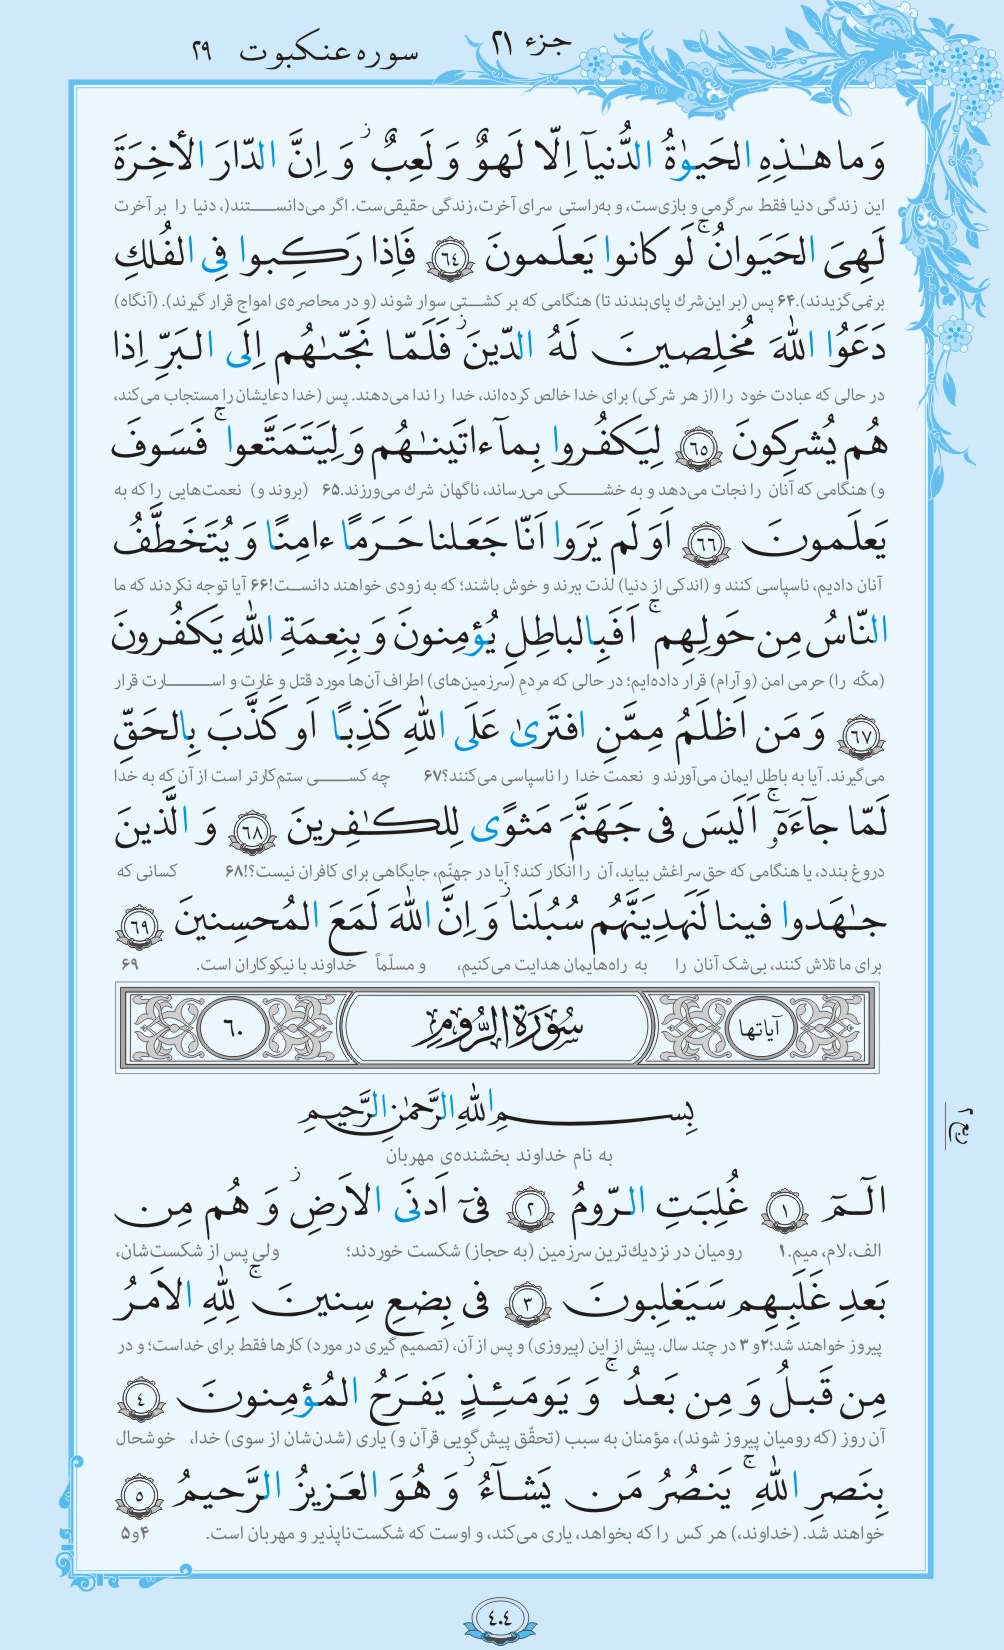 جزء ۲۱
سوره عنکبوت ۲۹
وَ ما هـٰذِهِ الحَیوٰةُ الدُّنیآ اِلّا لَهوٌ وَ لَعِبٌ ۚ وَ اِنَّ الدّارَ الأخِرَةَ
این زندگی دنیا فقط سرگرمی و بازی‌ست، و به‌راستی سرای آخرت، زندگی حقیقی‌ست. اگر می‌دانستند(، دنیا را بر آخرت
لَهِیَ الحَیَوانُ ۚ لَو کانوا یَعلَمونَ ﴿٦٤﴾ فَاِذا رَکِبوا فِی الفُلكِ
برنمی‌گزیدند).۶۴ پس (بر این‌شرك پای‌بندند تا) هنگامی که بر کشتی سوار شوند (و در محاصره‌ی امواج قرار گیرند). (آنگاه)
دَعَوُا اللّٰهَ مُخلِصینَ لَهُ الدّینَ ۚ فَلَمّا نَجّىٰهُم اِلَی البَرِّ اِذا
در حالی که عبادت خود را (از هر شرکی) برای خدا خالص کرده‌اند، خدا را ندا می‌دهند. پس (خدا دعایشان را مستجاب می‌کند،
هُم یُشرِکونَ ﴿٦٥﴾ لِیَکفُروا بِمآ ءاتَینٰهُم وَ لِیَتَمَتَّعوا ۚ فَسَوفَ
و) هنگامی که آنان را نجات می‌دهد و به خشکی می‌رساند، ناگهان شرك می‌ورزند.۶۵ (بروند و) نعمت‌هایی را که به
یَعلَمونَ ﴿٦٦﴾ اَوَ لَم یَرَوا اَنّا جَعَلنا حَرَمًا ءامِنًا وَ یُتَخَطَّفُ
آنان دادیم، ناسپاسی کنند و (اندکی از دنیا) لذت ببرند و خوش باشند؛ که به زودی خواهند دانست!۶۶ آیا توجه نکردند که ما
النّاسُ مِن حَولِهِم ۚ اَفَبِالباطِلِ یُؤمِنونَ وَ بِنِعمَةِ اللّٰهِ یَکفُرونَ
(مکّه را) حرمی امن (و آرام) قرار داده‌ایم؛ در حالی که مردمِ (سرزمین‌های) اطراف آن‌ها مورد قتل و غارت و اسارت قرار
﴿٦٧﴾ وَ مَن اَظلَمُ مِمَّنِ افتَرىٰ عَلَی اللّٰهِ کَذِبًا اَو کَذَّبَ بِالحَقِّ
می‌گیرند. آیا به باطل ایمان می‌آورند و نعمت خدا را ناسپاسی می‌کنند؟۶۷ چه کسی ستم‌کارتر است از آن که به خدا
لَمّا جآءَهٗ ۚ اَلَیسَ فی جَهَنَّمَ مَثوًی لِلکٰفِرینَ ﴿٦٨﴾ وَ الَّذینَ
دروغ بندد، یا هنگامی که حق سراغش بیاید، آن را انکار کند؟ آیا در جهنّم، جایگاهی برای کافران نیست؟!۶۸ کسانی که
جٰهَدوا فینا لَنَهدِیَنَّهُم سُبُلَنا ۚ وَ اِنَّ اللّٰهَ لَمَعَ المُحسِنینَ ﴿٦٩﴾
برای ما تلاش کنند، بی‌شک آنان را به راه‌هایمان هدایت می‌کنیم، و مسلّماً خداوند با نیکوکاران است. ۶۹
آیاتها سُورَةُ الرُّومِ ٦٠
بِسمِ اللّٰهِ الرَّحمٰنِ الرَّحیمِ
به نام خداوند بخشنده‌ی مهربان
الٓـمٓ ﴿١﴾ غُلِبَتِ الرّومُ ﴿٢﴾ فیٓ اَدنَی الاَرضِ ۚ وَ هُم مِن
الف، لام، میم.۱ رومیان در نزدیك‌ترین سرزمین (به حجاز) شکست خوردند؛ ولی پس از شکست‌شان،
بَعدِ غَلَبِهِم سَیَغلِبونَ ﴿٣﴾ فی بِضعِ سِنینَ ۚ لِلّٰهِ الاَمرُ
پیروز خواهند شد؛۲و ۳ در چند سال. پیش از این (پیروزی) و پس از آن، (تصمیم گیری در مورد) کارها فقط برای خداست؛ و در
مِن قَبلُ وَ مِن بَعدُ ۚ وَ یَومَئِذٍ یَفرَحُ المُؤمِنونَ ﴿٤﴾
آن روز (که رومیان پیروز شوند)، مؤمنان به سبب (تحقّق پیش‌گویی قرآن و) یاری (شدن‌شان از سوی) خدا، خوشحال
بِنَصرِ اللّٰهِ ۚ یَنصُرُ مَن یَشآءُ ۚ وَ هُوَ العَزیزُ الرَّحیمُ ﴿٥﴾
خواهند شد. (خداوند،) هر کس را که بخواهد، یاری می‌کند، و اوست که شکست‌ناپذیر و مهربان است. ۴و۵
٤٠٤